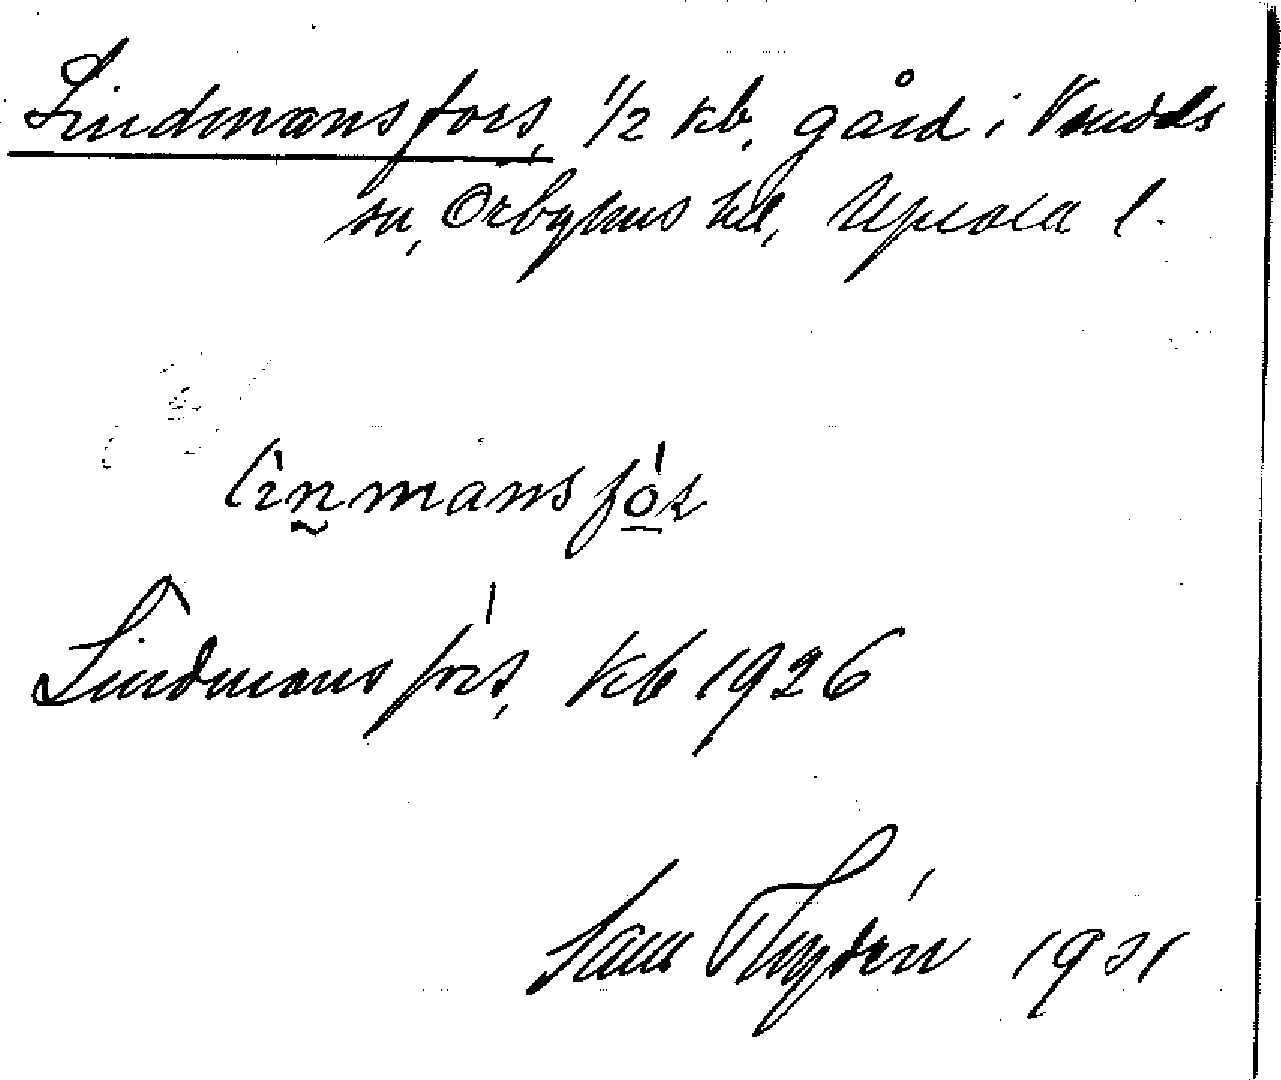 Lindmansfors, 1/2 kb. gård i Vendels
sn, Örbyhus hd, Upsala l.
linmansfòs
Lindmansfors, Kb 1926
Sam Thydén 1931